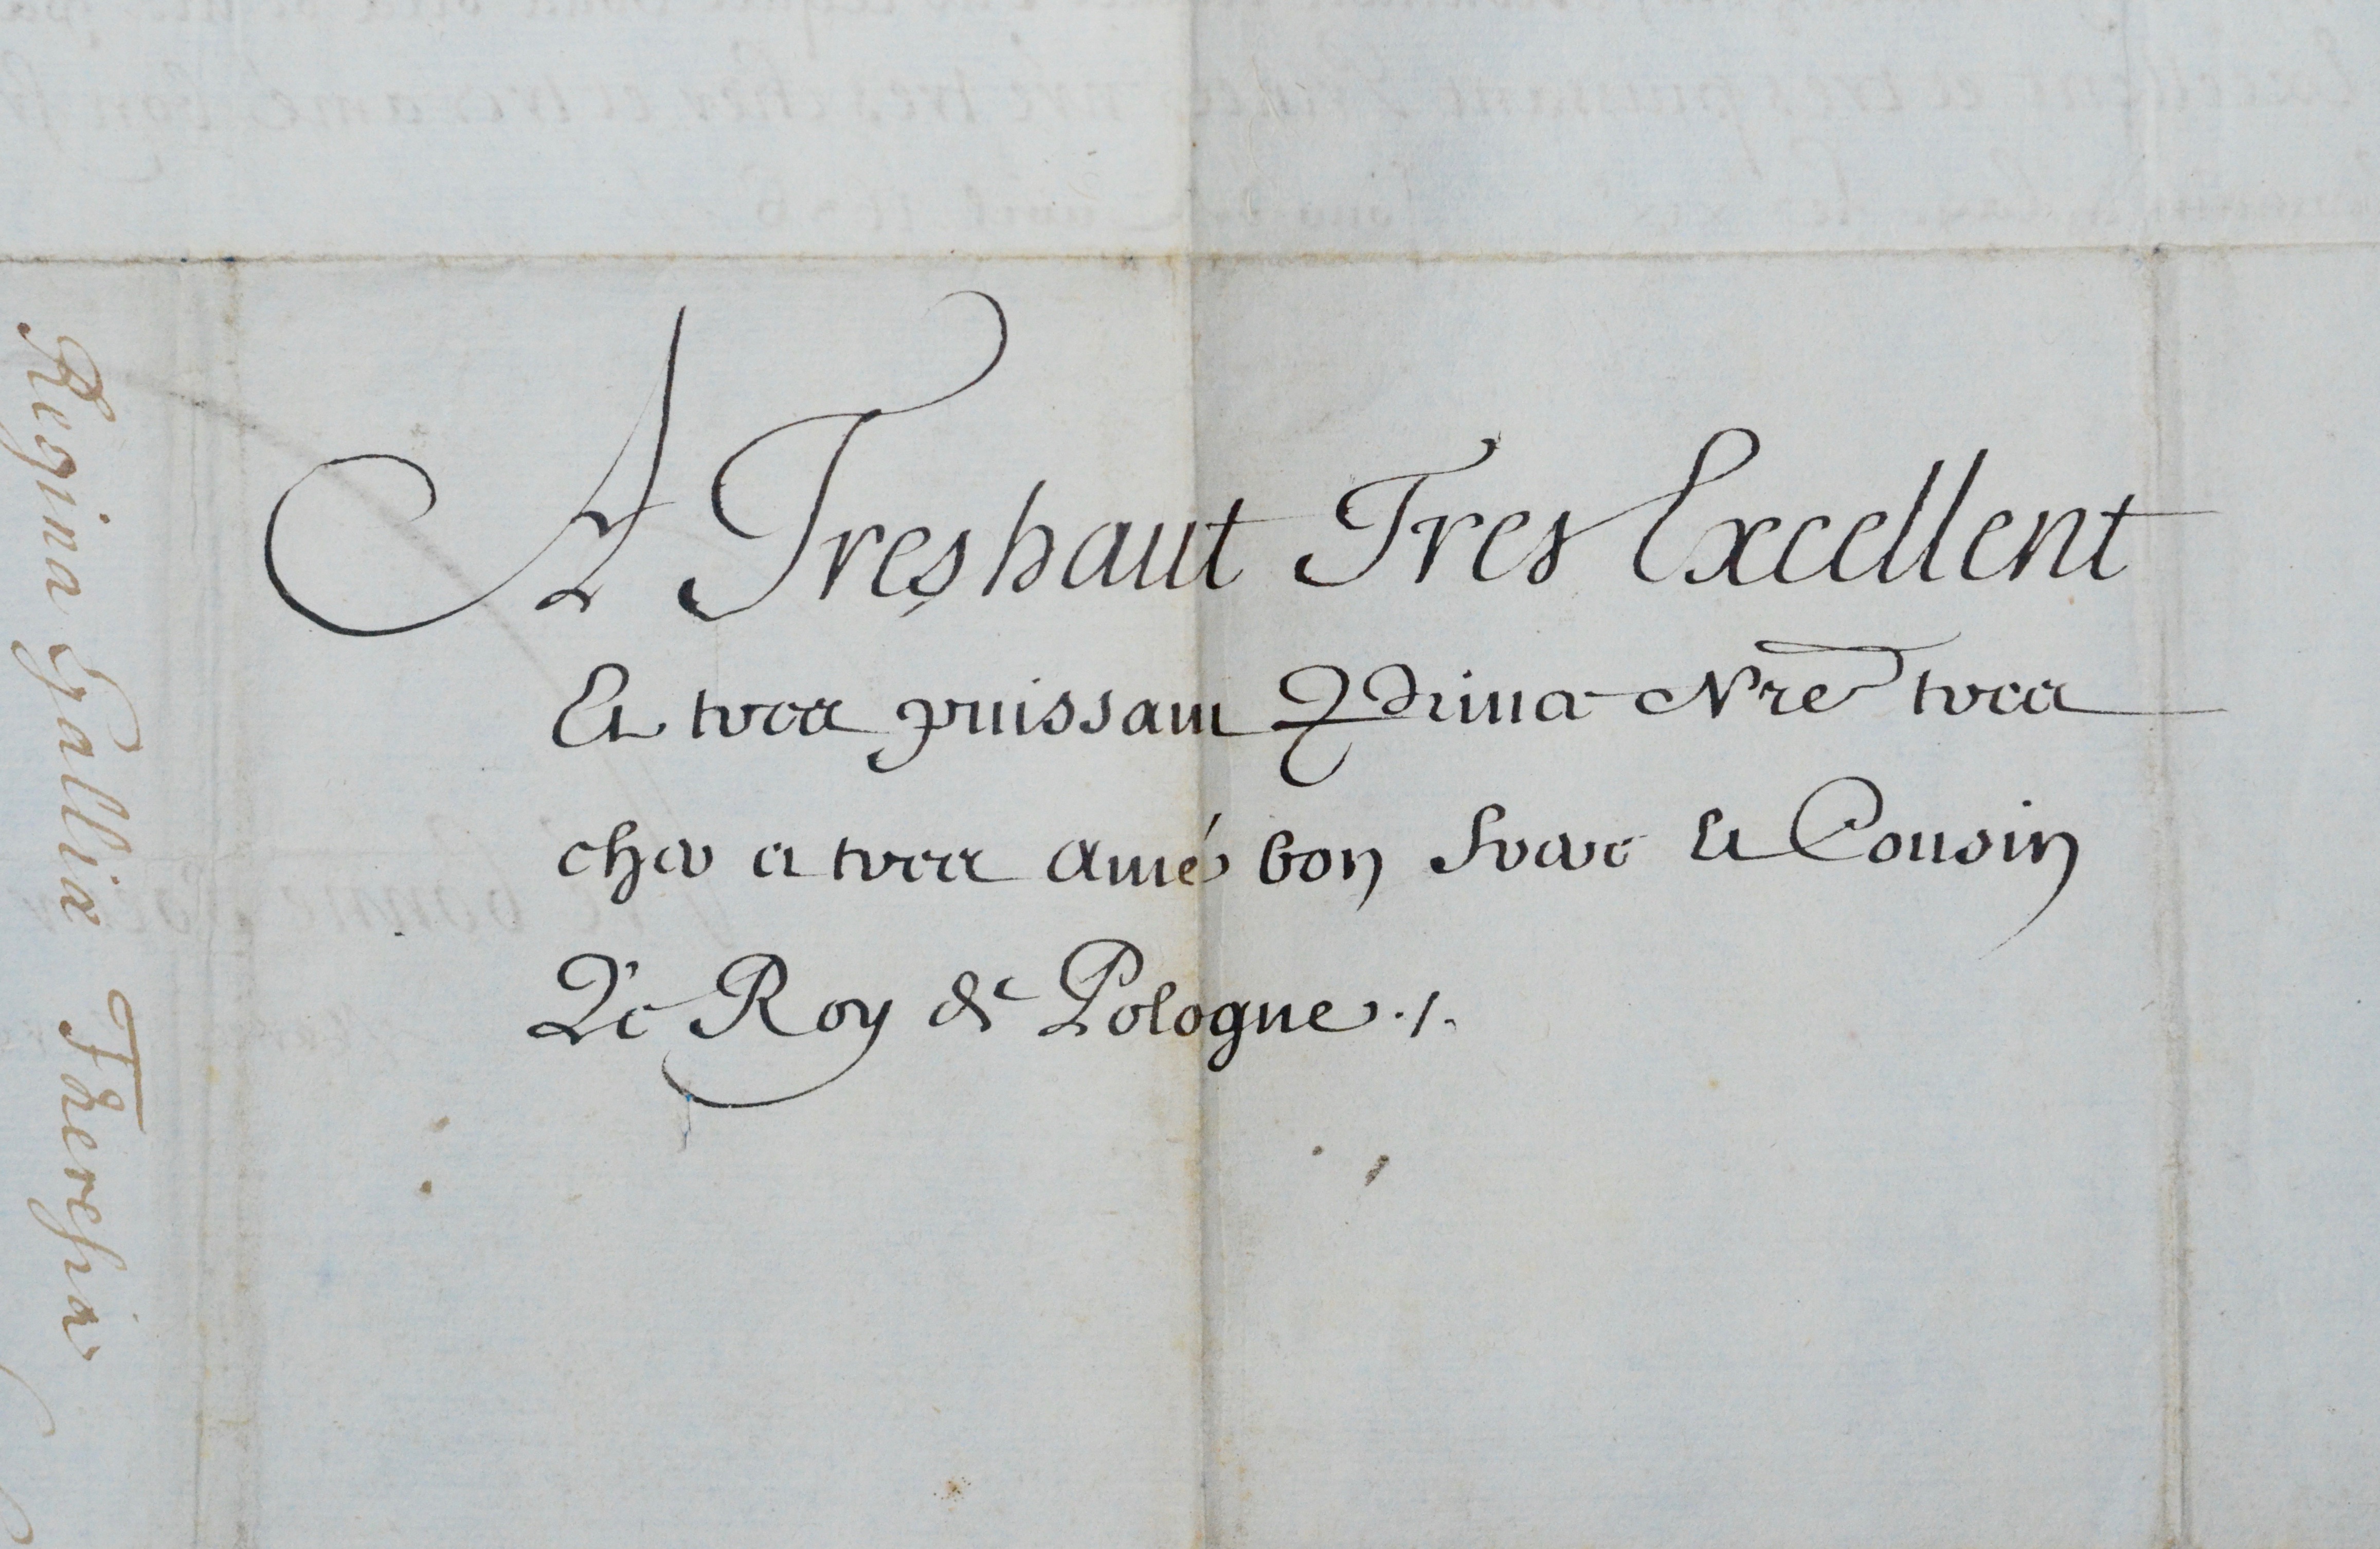 A Tres haut Tres Excellent
Et tres puissant Prince Nre tres
cher et tres amé bon frere Et Cousin
Le Roy de Pologne ./.
Regina Galliæ Theresia